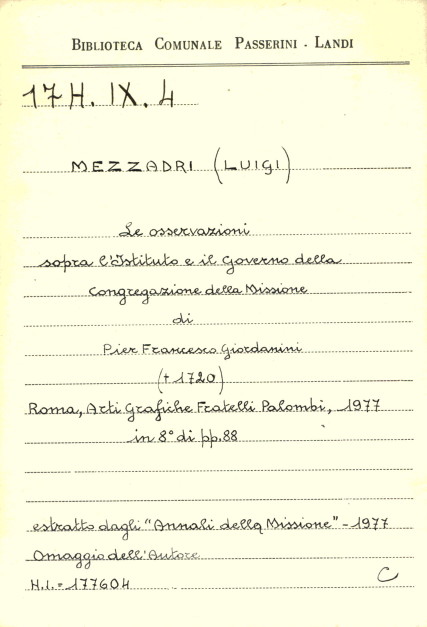 BIBLIOTECA COMUNALE PASSERINI - LANDI
17H. IX. 4
MEZZADRI (LUIGI)
Le osservazioni
sopra l'Istituto e il Governo della
Congregazione della Missione
di
Pier Francesco Giordanini
(† 1720)
Roma, Arti Grafiche Fratelli Palombi, 1977
in 8° di pp. 88
estratto dagli "Annali della Missione" - 1977
Omaggio dell'Autore
N.I. = 177604
C